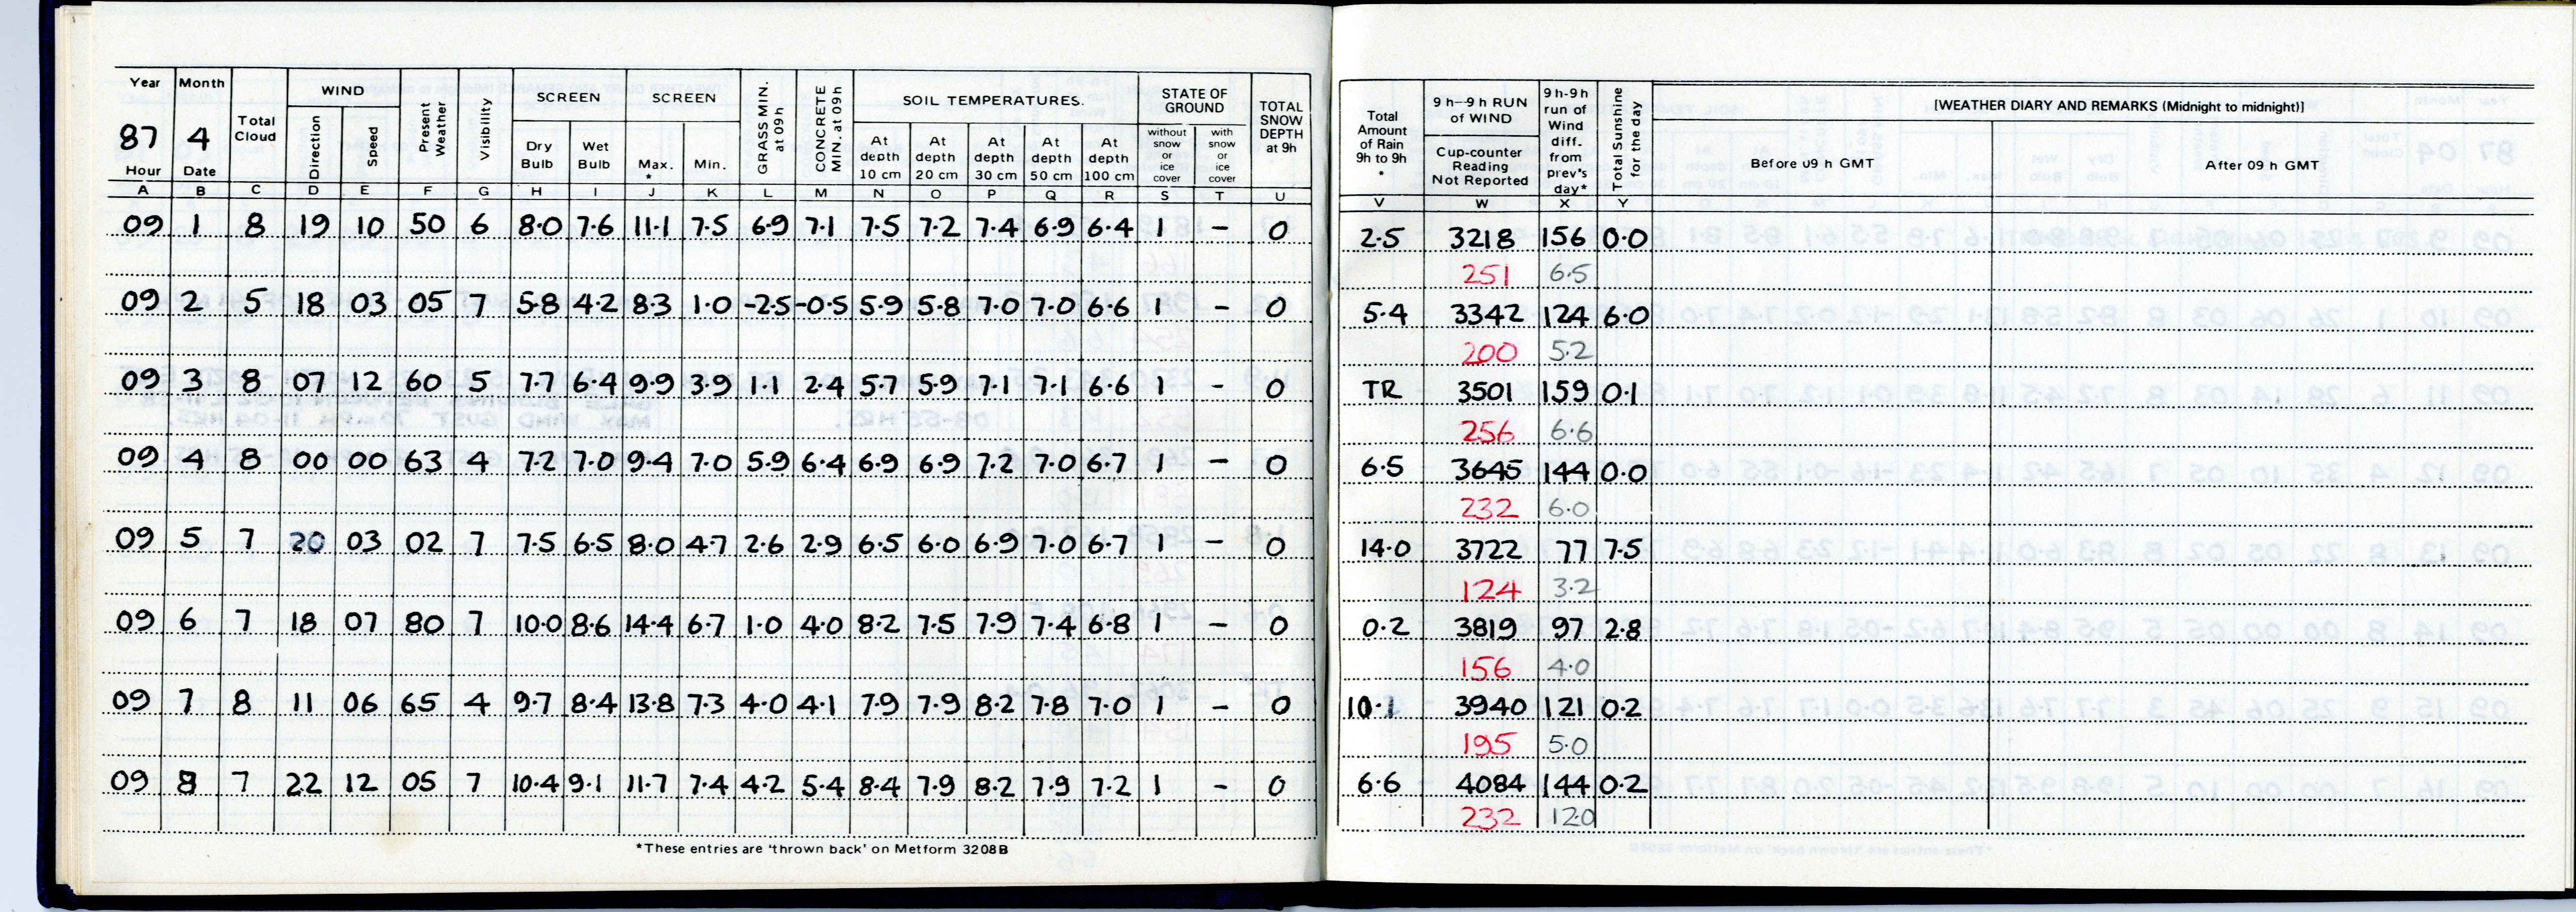 Year Month Total Cloud WIND Present Weather Visibility SCREEN SCREEN GRASS MIN. at 09h CONCRETE MIN. at 09h SOIL TEMPERATURES. STATE OF GROUND TOTAL SNOW DEPTH at 9h
87 4 Direction Speed Dry Bulb Wet Bulb Max. * Min. At depth 10 cm At depth 20 cm At depth 30 cm At depth 50 cm At depth 100 cm without snow or ice cover with snow or ice cover
Hour Date
A B C D E F G H I J K L M N O P Q R S T U
09 1 8 19 10 50 6 8.0 7.6 11.1 7.5 6.9 7.1 7.5 7.2 7.4 6.9 6.4 1 - 0
09 2 5 18 03 05 7 5.8 4.2 8.3 1.0 -2.5 -0.5 5.9 5.8 7.0 7.0 6.6 1 - 0
09 3 8 07 12 60 5 7.7 6.4 9.9 3.9 1.1 2.4 5.7 5.9 7.1 7.1 6.6 1 - 0
09 4 8 00 00 63 4 7.2 7.0 9.4 7.0 5.9 6.4 6.9 6.9 7.2 7.0 6.7 1 - 0
09 5 7 20 03 02 7 7.5 6.5 8.0 4.7 2.6 2.9 6.5 6.0 6.9 7.0 6.7 1 - 0
09 6 7 18 07 80 7 10.0 8.6 14.4 6.7 1.0 4.0 8.2 7.5 7.9 7.4 6.8 1 - 0
09 7 8 11 06 65 4 9.7 8.4 13.8 7.3 4.0 4.1 7.9 7.9 8.2 7.8 7.0 1 - 0
09 8 7 22 12 05 7 10.4 9.1 11.7 7.4 4.2 5.4 8.4 7.9 8.2 7.9 7.2 1 - 0
*These entries are 'thrown back' on Metform 3208B
Total Amount of Rain 9h to 9h * 9h--9h RUN of WIND 9h-9h run of Wind diff. from prev's day* Total Sunshine for the day [WEATHER DIARY AND REMARKS (Midnight to midnight)]
Cup-counter Reading Not Reported Before 09 h GMT After 09 h GMT
V W X Y
2.5 3218 156 0.0
251 6.5
5.4 3342 124 6.0
200 5.2
TR 3501 159 0.1
256 6.6
6.5 3645 144 0.0
232 6.0
14.0 3722 77 7.5
124 3.2
0.2 3819 97 2.8
156 4.0
10.1 3940 121 0.2
195 5.0
6.6 4084 144 0.2
232 12.0